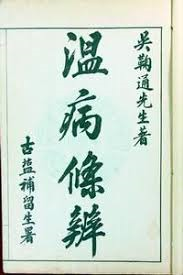 吳鞠通先生著
溫病條辨
古鹽補留生署